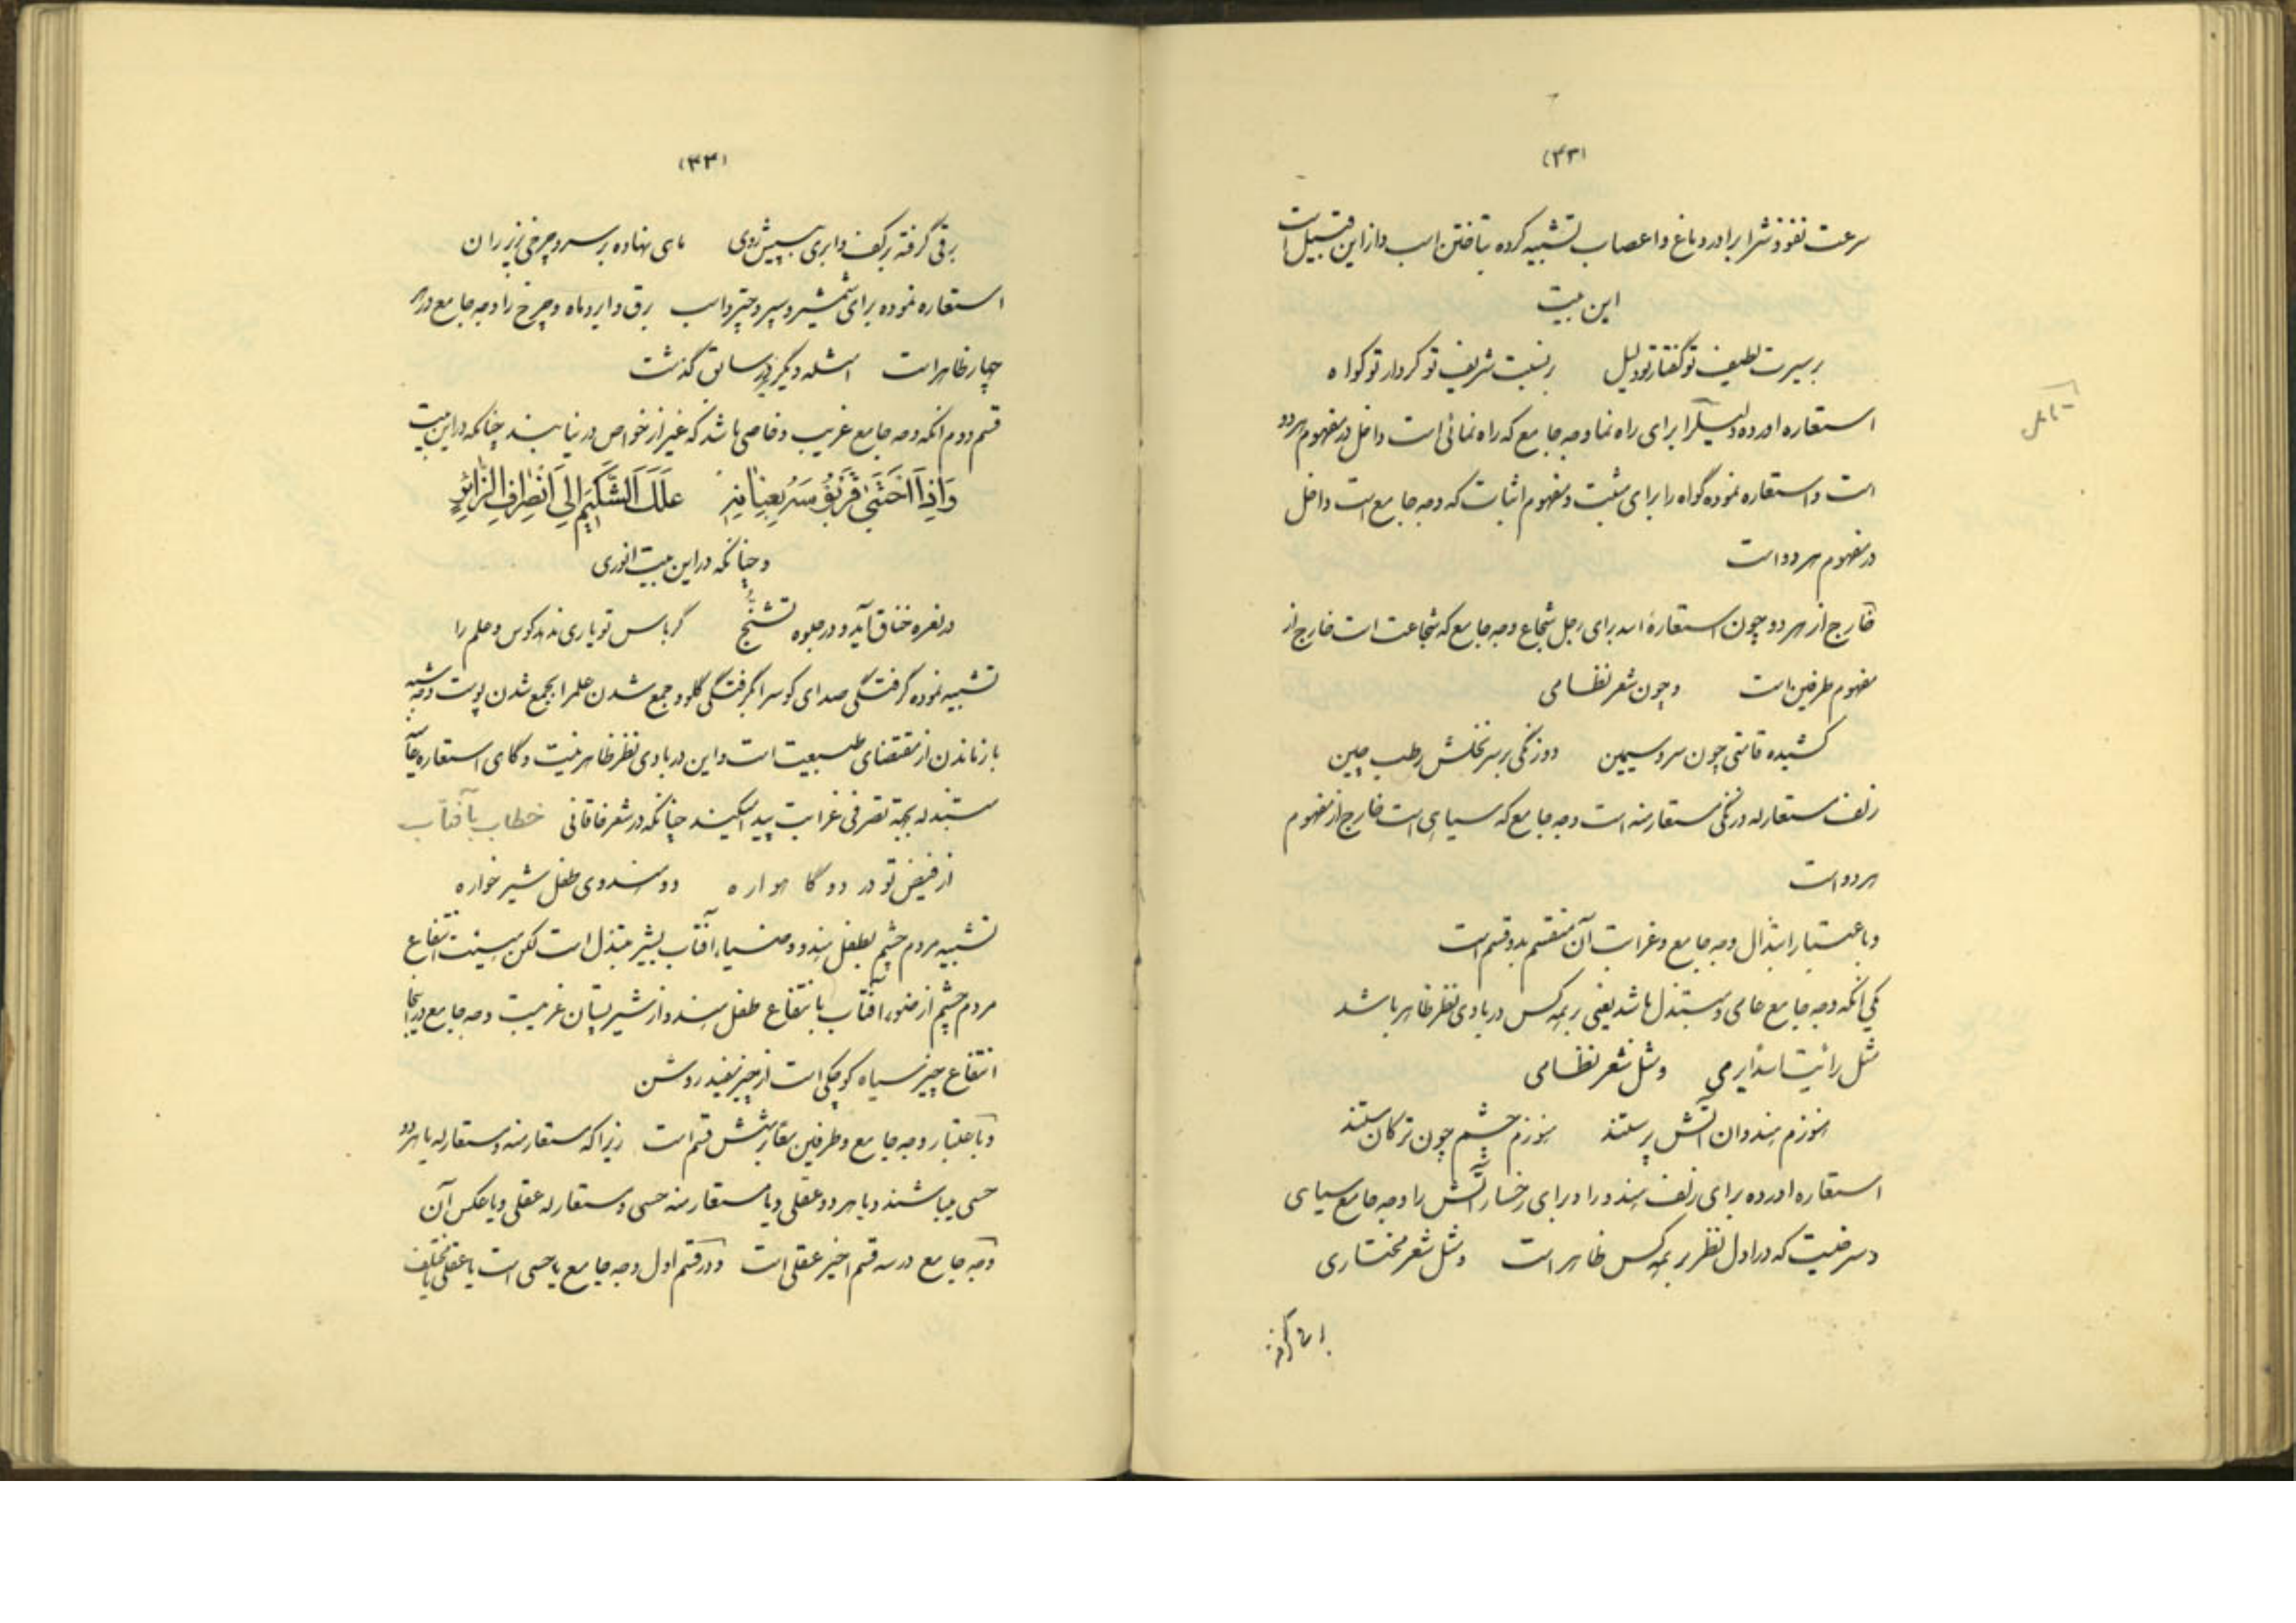 (۴۳)
سرعت نفوذ شرابرا در دماغ و اعصاب تشبیه کرده بتاختن اسب و از این قبیل است
این بیت
بر سیرت لطیف تو گفتار تو دلیل بر نسبت شریف تو کردار تو کواه
استعاره اورده دلیلرا برای راه نما و وجه جامع که راه نمائی است داخل در مفهوم هر دو
است و استعاره نموده گواه را برای مثبت و مفهوم اثبات که وجه جامع است داخل
در مفهوم هر دو است
خارج از هر دو چون استعارهٔ اسد برای رجل شجاع و وجه جامع که شجاعت است خارج از
مفهوم طرفین است و چون شعر نظامی
کشیده قامتی چون سرو سیمین دو زنگی بر سر نخلش رطب چین
زلف مستعار له و زنگی مستعار منه است و وجه جامع که سیاهی است خارج از مفهوم
هر دو است
و باعتبار ابتذال وجه جامع و غرابت آن منقسم بدو قسم است
یکی انکه وجه جامع عامی و مبتذل باشد یعنی بر همه کس در بادی نظر ظاهر باشد
مثل رأیت اسداً یرمی و مثل شعر نظامی
هنوزم هندوان آتش پرستند هنوزم چشم چون ترکان مستند
استعاره اورده برای زلف هندو را و برای رخسار آتش را و وجه جامع سیاهی
و سرخیست که در اول نظر بر همه کس ظاهر است و مثل شعر مختاری
(۴۴)
برقی گرفته بر کف و ابری به پیش روی ماهی نهاده بر سر و چرخی بزیر ران
استعاره نموده برای شمشیر و سپر و چتر و اسب برق و ابر و ماه و چرخ را و وجه جامع در هر
چهار ظاهر است امثله دیگر نیز سابق گذشت
قسم دوم انکه وجه جامع غریب و خاصی باشد که غیر از خواص در نیابند چنانکه در این بیت
وَاِذَا احْتَبیٰ قَرَبُوسَهُ بِعِنٰانِهِ عَلَكَ الشَّكِيمَ اِلیَ انْصِرٰافِ الزّٰائِرِ
و چنانکه در این بیت انوری
در نعره خناق آید و در جلوه تشنّج گر باس تو یاری ندهد کوس و علم را
تشبیه نموده گرفتگی صدای کوسرا بگرفتگی گلو و جمع شدن علمرا بجمع شدن پوست وجه شبه
باز ماندن از مقتضای طبیعت است و این در بادی نظر ظاهر نیست و گاهی استعاره عامه
مبتذله بجهة تصرفی غرابت پیدا میکند چنانکه در شعر خاقانی خطاب بآفتاب
از فیض تو در دو گاهواره دو هندوی طفل شیر خواره
تشبیه مردم چشم بطفل هندو و ضیاء آفتاب بشیر مبتذل است لکن نسبت انتفاع
مردم چشم از ضوء آفتاب بانتفاع طفل هندو از شیر پستان غریبست وجه جامع در اینجا
انتفاع چیز سیاه کوچکی است از چیز سفید روشن
و باعتبار وجه جامع و طرفین استعاره بشش قسم است زیرا که مستعار منه و مستعار له یا هر دو
حسی میباشند و یا هر دو عقلی و یا مستعار منه حسی و مستعار له عقلی و یا عکس آن
وجه جامع در سه قسم اخیر عقلی است و در قسم اول وجه جامع یا حسی است یا عقلی یا مختلف